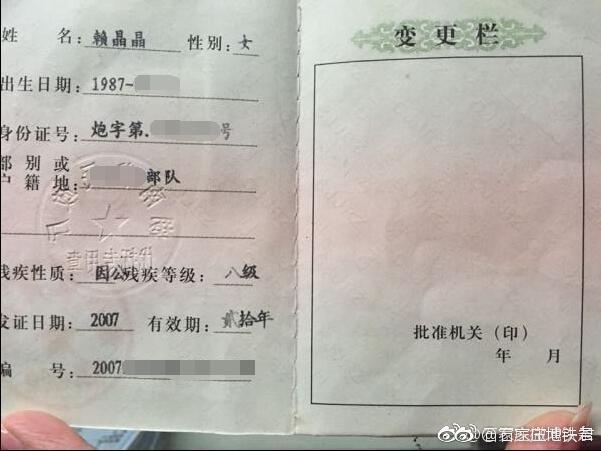 姓 名：賴晶晶 性别：女
出生日期：1987-
身份证号：炮字第. 号
部别或
户籍地： 部队
残疾性质：因公残疾等级：八级
发证日期：2007 有效期：贰拾年
编 号：2007
变更栏
批准机关（印）
年 月